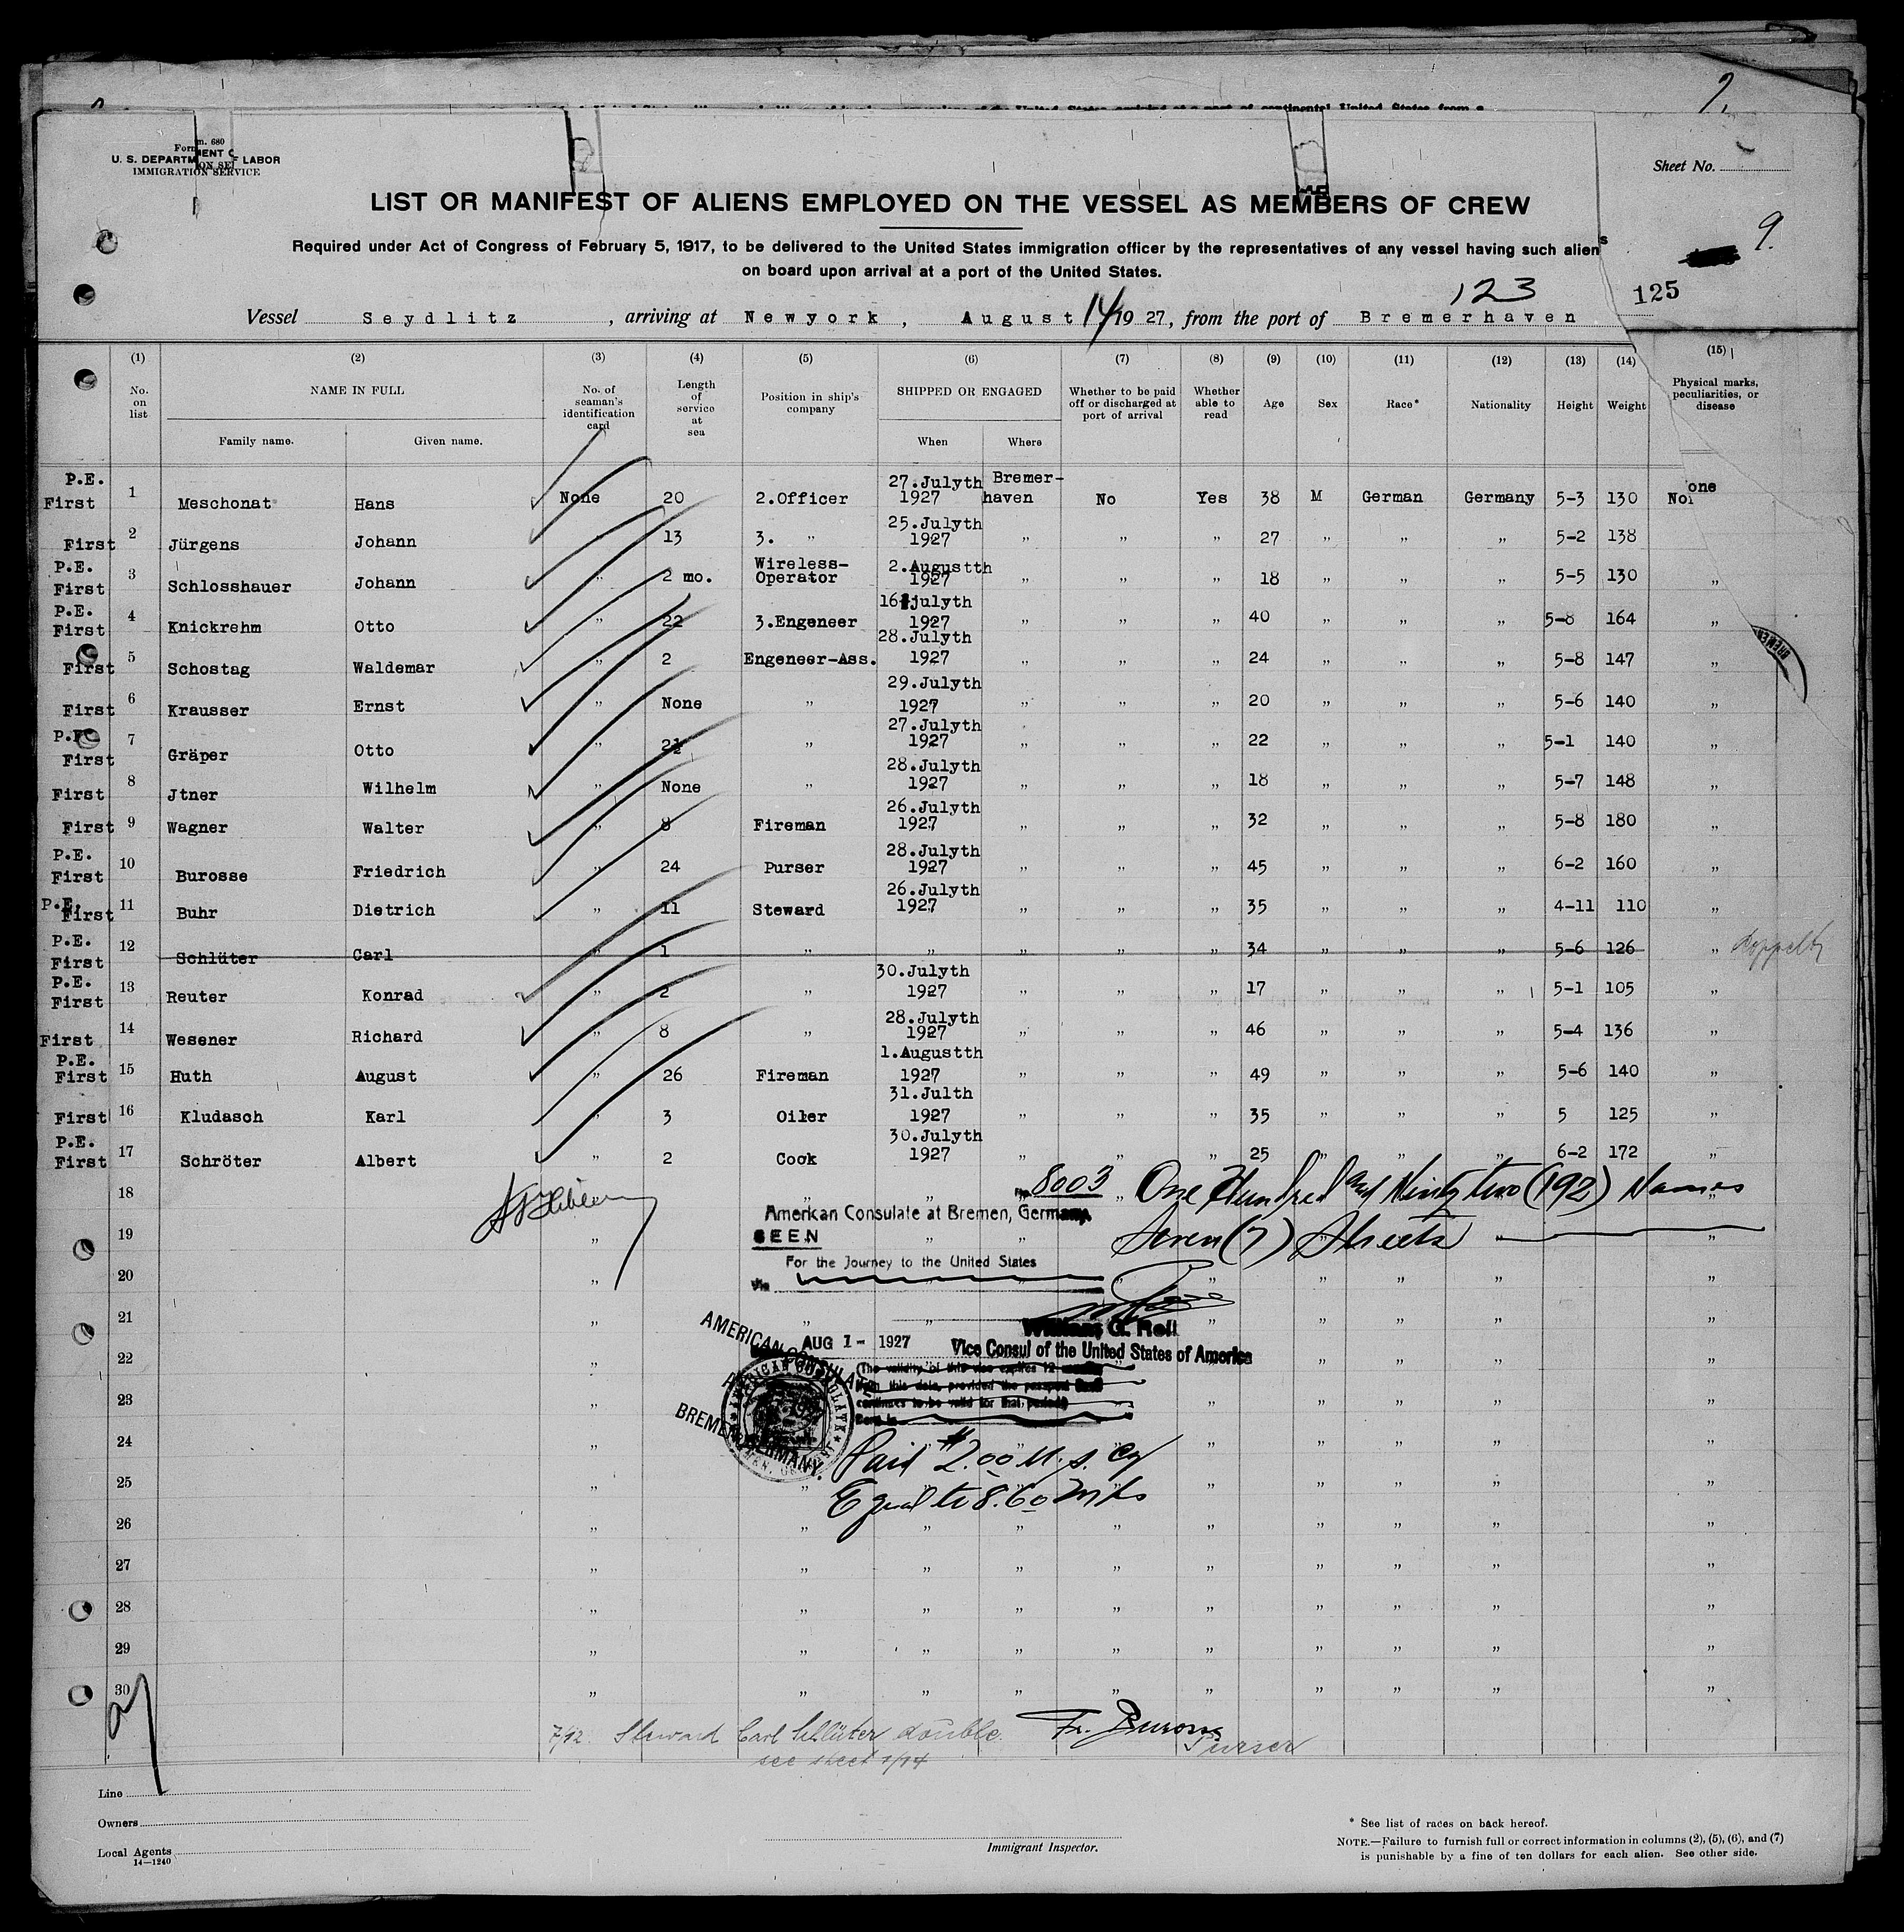 Form. 680
U. S. DEPARTMENT OF LABOR
IMMIGRATION SERVICE
Sheet No.
9.
125
LIST OR MANIFEST OF ALIENS EMPLOYED ON THE VESSEL AS MEMBERS OF CREW
Required under Act of Congress of February 5, 1917, to be delivered to the United States immigration officer by the representatives of any vessel having such aliens
on board upon arrival at a port of the United States.
123
Vessel Seydlitz, arriving at Newyork, August 14 1927, from the port of Bremerhaven
(1) (2) (3) (4) (5) (6) (7) (8) (9) (10) (11) (12) (13) (14) (15)
No. on list
NAME IN FULL
Family name. Given name.
No. of seaman's identification card
Length of service at sea
Position in ship's company
SHIPPED OR ENGAGED
When Where
Whether to be paid off or discharged at port of arrival
Whether able to read
Age
Sex
Race*
Nationality
Height
Weight
Physical marks, peculiarities, or disease
P.E. First 1 Meschonat Hans None 20 2.Officer 27.Julyth 1927 Bremer-haven No Yes 38 M German Germany 5-3 130 None
First 2 Jürgens Johann " 13 3. " 25.Julyth 1927 " " " 27 " " " 5-2 138
P.E. First 3 Schlosshauer Johann " 2 mo. Wireless-Operator 2.Augustth 1927 " " " 18 " " " 5-5 130 "
P.E. First 4 Knickrehm Otto " 22 3.Engeneer 16.julyth 1927 " " " 40 " " " 5-8 164 "
First 5 Schostag Waldemar " 2 Engeneer-Ass. 28.Julyth 1927 " " " 24 " " " 5-8 147 "
First 6 Krausser Ernst " None " 29.Julyth 1927 " " " 20 " " " 5-6 140 "
P.E. First 7 Gräper Otto " 2½ " 27.Julyth 1927 " " " 22 " " " 5-1 140 "
First 8 Jtner Wilhelm " None " 28.Julyth 1927 " " " 18 " " " 5-7 148 "
First 9 Wagner Walter " 8 Fireman 26.Julyth 1927 " " " 32 " " " 5-8 180 "
P.E. First 10 Burosse Friedrich " 24 Purser 28.Julyth 1927 " " " 45 " " " 6-2 160 "
P.E. First 11 Buhr Dietrich " 11 Steward 26.Julyth 1927 " " " 35 " " " 4-11 110 "
P.E. First 12 Schlüter Carl " 1 " " " " " 34 " " " 5-6 126 " doppelt
P.E. First 13 Reuter Konrad " 2 " 30.Julyth 1927 " " " 17 " " " 5-1 105 "
First 14 Wesener Richard " 8 " 28.Julyth 1927 " " " 46 " " " 5-4 136 "
P.E. First 15 Huth August " 26 Fireman 1.Augustth 1927 " " " 49 " " " 5-6 140 "
First 16 Kludasch Karl " 3 Oiler 31.Julth 1927 " " " 35 " " " 5 125 "
P.E. First 17 Schröter Albert " 2 Cook 30.Julyth 1927 " " " 25 " " " 6-2 172 "
18
No. 8003 One Hundred and Ninety two (192) Names
American Consulate at Bremen, Germany.
19
SEEN Seven (7) Sheets
For the Journey to the United States
20
Via
21
AUG 1- 1927
William G. Roll
Vice Consul of the United States of America
22
(The validity of this visa expires 12 months
from this date, provided the passport
continues to be valid for that period)
AMERICAN CONSULATE
BREMEN, GERMANY.
23
24
Paid $2.00 U.S. Cy
25
Equal to 8.60 Mks
26
27
28
29
30
7/12. Steward Carl Schlüter double. Fr. Burosse
see sheet 1/14 Purser
Line
Owners
Local Agents
14—1240
Immigrant Inspector.
* See list of races on back hereof.
NOTE.—Failure to furnish full or correct information in columns (2), (5), (6), and (7)
is punishable by a fine of ten dollars for each alien. See other side.